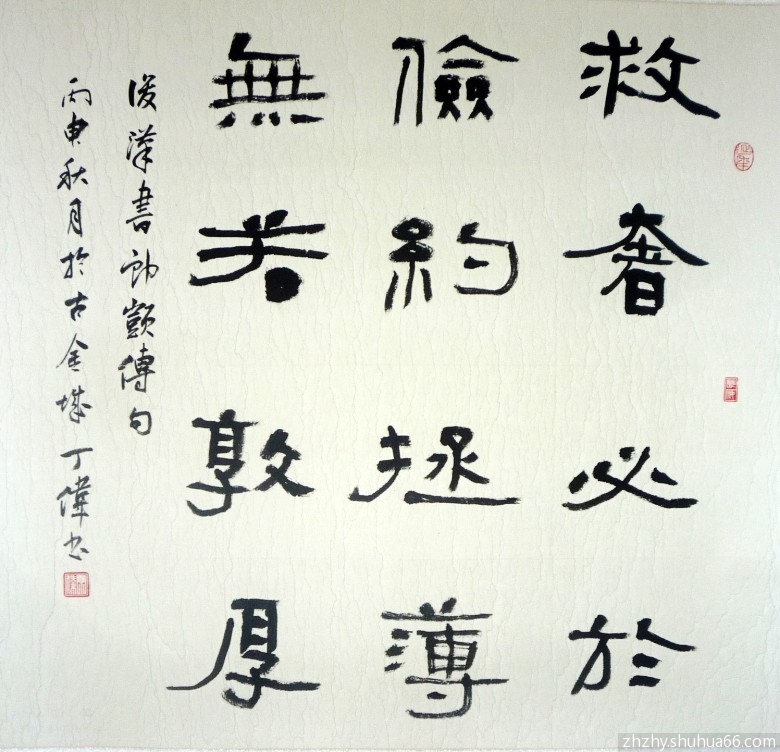 救奢必於
儉約拯薄
無若敦厚
後漢書郎顗傳句
丙申秋月於古金城丁偉书
zhzhy.shuhua66.com